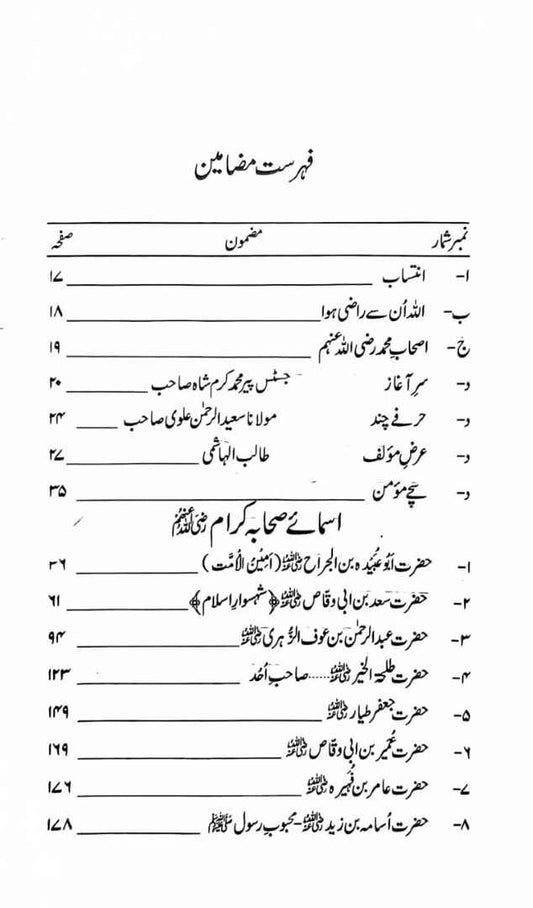 فہرست مضامین
نمبر شمار مضمون صفحہ
ا- انتساب ۱۷
ب- اللہ اُن سے راضی ہوا ۱۸
ج- اصحابِ محمد رضی اللہ عنہم ۱۹
د- سرِ آغاز جسٹس پیر محمد کرم شاہ صاحب ۲۰
د- حرفے چند مولانا سعید الرحمٰن علوی صاحب ۲۴
د- عرضِ مؤلف طالب الہاشمی ۲۷
د- سچے مؤمن ۳۵
اسمائے صحابہ کرام رضی اللہ عنہم
۱- حضرت ابو عُبَیْدہ بن الجراح رضی اللہ عنہ (اَمِیْنُ الْاُمَّت) ۳۶
۲- حضرت سعد بن ابی وقاص رضی اللہ عنہ ﴿شہسوارِ اسلام﴾ ۶۱
۳- حضرت عبدالرحمٰن بن عوف الزُّہری رضی اللہ عنہ ۹۴
۴- حضرت طلحۃ الخیر رضی اللہ عنہ ...... صاحبِ اُحُد ۱۲۳
۵- حضرت جعفر طیار رضی اللہ عنہ ۱۴۹
۶- حضرت عُمَیر بن ابی وقاص رضی اللہ عنہ ۱۶۹
۷- حضرت عامر بن فُہَیرہ رضی اللہ عنہ ۱۷۶
۸- حضرت اُسامہ بن زید رضی اللہ عنہ - محبوبِ رسول ﷺ ۱۷۸